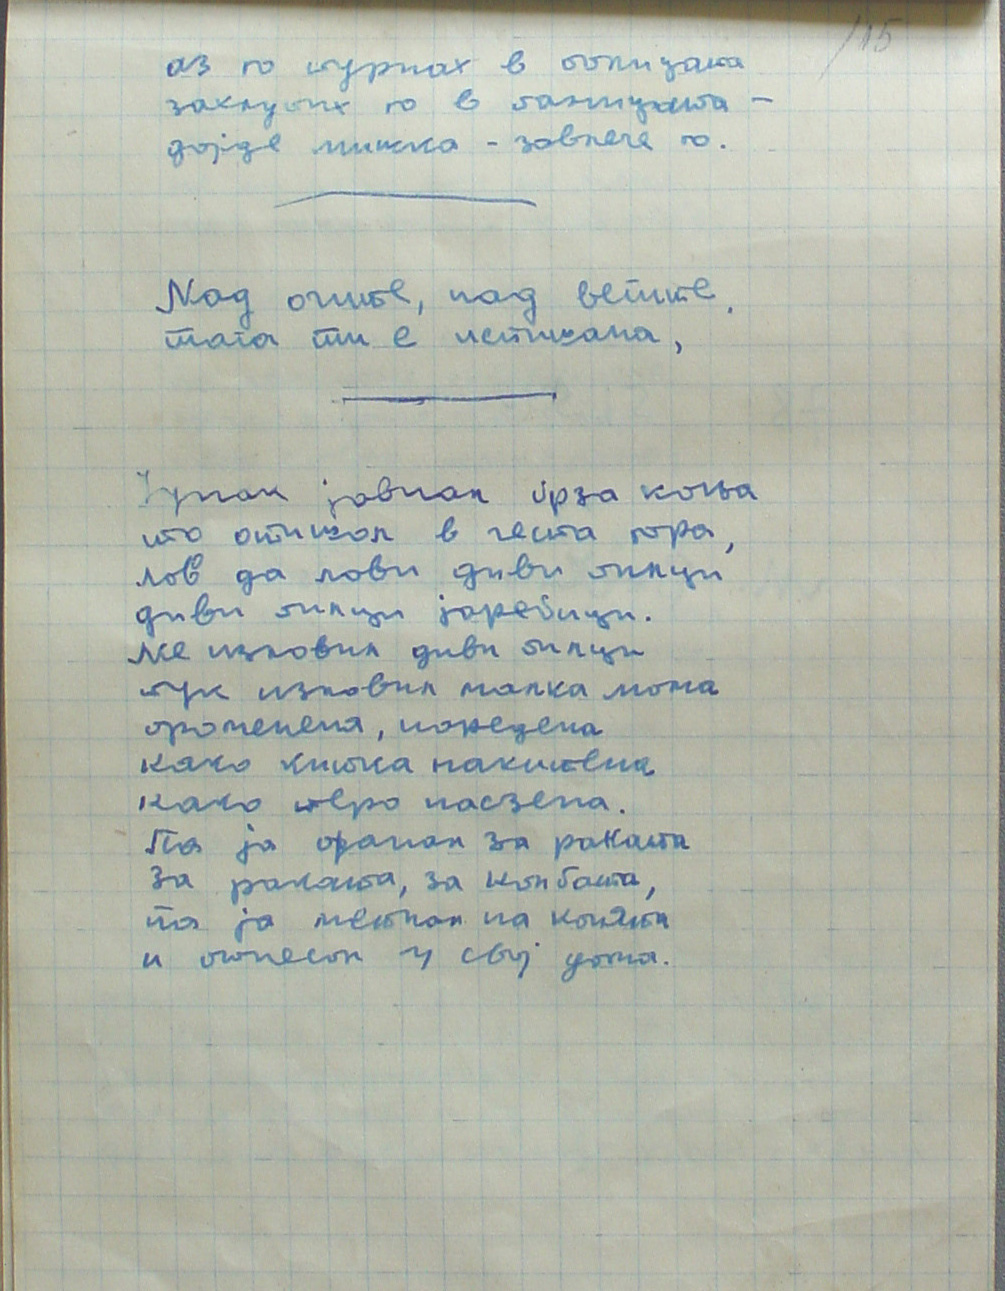 /15
аз го турнах в
заклупих го в паницата –
дојде мишка – завлече го.
Над очите, над веѓите,
тага ти е испишана,
Јунак јавнал брза коња
што отишол в честа гора,
лов да лови диви пилци
диви пилци јаребици.
Не изловил диви пилци
тук изловил малка мома
променена, наредена
како китка накитена
како перо насзена.
Па ја фанал за раката
за раката, за колбата,
та ја метнал на конята
и отнесол у свој дома.